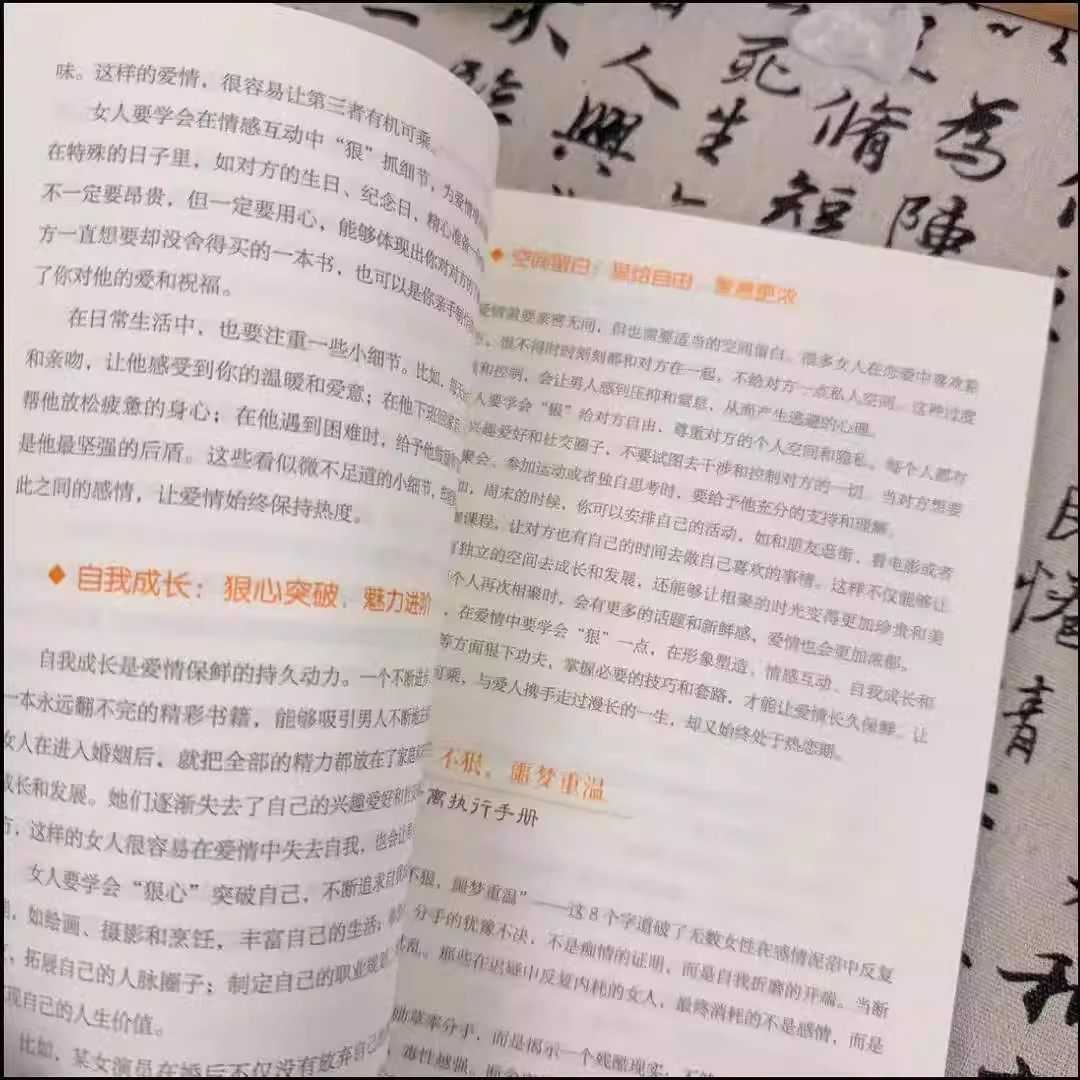 味。这样的爱情，很容易让第三者有机可乘。
女人要学会在情感互动中“狠”抓细节，为爱情
在特殊的日子里，如对方的生日、纪念日，精心准备一
不一定要昂贵，但一定要用心，能够体现出你对对方的
方一直想要却没舍得买的一本书，也可以是你亲手制作
了你对他的爱和祝福。
在日常生活中，也要注重一些小细节。比如，每天
和亲吻，让他感受到你的温暖和爱意；在他下班回家
帮他放松疲惫的身心；在他遇到困难时，给予他
是他最坚强的后盾。这些看似微不足道的小细节，
此之间的感情，让爱情始终保持热度。
◆ 自我成长：狠心突破，魅力进阶
自我成长是爱情保鲜的持久动力。一个不断进
一本永远翻不完的精彩书籍，能够吸引男人不断地
女人在进入婚姻后，就把全部的精力都放在了家庭
成长和发展。她们逐渐失去了自己的兴趣爱好和社
，这样的女人很容易在爱情中失去自我，也会让
女人要学会“狠心”突破自己，不断追求自我
，如绘画、摄影和烹饪，丰富自己的生活；
，拓展自己的人脉圈子；制定自己的职业规划，
现自己的人生价值。
比如，某女演员在婚后不仅没有放弃自己
◆ 空间留白：狠给自由，
爱情需要亲密无间，但也需要适当的空间留白。很多女人在恋爱中喜欢黏
，恨不得时时刻刻都和对方在一起，不给对方一点私人空间。这种过度
和控制，会让男人感到压抑和窒息，从而产生逃避的心理。
人要学会“狠”给对方自由，尊重对方的个人空间和隐私。每个人都有
兴趣爱好和社交圈子，不要试图去干涉和控制对方的一切。当对方想要
聚会、参加运动或者独自思考时，要给予他充分的支持和理解。
如，周末的时候，你可以安排自己的活动，如和朋友逛街、看电影或者
加课程，让对方也有自己的时间去做自己喜欢的事情。这样不仅能够让
有独立的空间去成长和发展，还能够让相聚的时光变得更加珍贵和美
个人再次相聚时，会有更多的话题和新鲜感，爱情也会更加浓郁。
，在爱情中要学会“狠”一点，在形象塑造、情感互动、自我成长和
等方面狠下功夫，掌握必要的技巧和套路，才能让爱情长久保鲜。让
可乘，与爱人携手走过漫长的一生，却又始终处于热恋期。
不狠，噩梦重温
离执行手册
不狠，噩梦重温”——这8个字道破了无数女性在感情泥沼中反复
分手的犹豫不决，不是痴情的证明，而是自我折磨的开端。当断
乱。那些在迟疑中反复内耗的女人，最终消耗的不是感情，而是
草率分手，而是揭示一个残酷现实：
毒性越强。
人
死
生
興
脩
短
為
陳
青